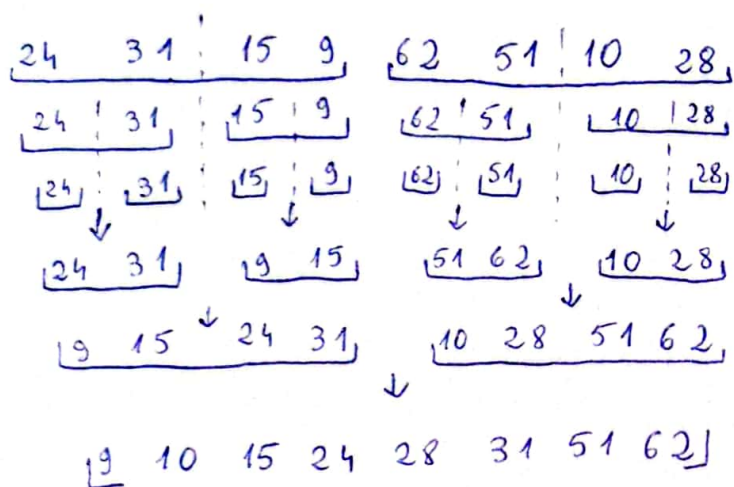 24 31 15 9 62 51 10 28
24 31 15 9 62 51 10 28
24 31 15 9 62 51 10 28
24 31 9 15 51 62 10 28
9 15 24 31 10 28 51 62
9 10 15 24 28 31 51 62